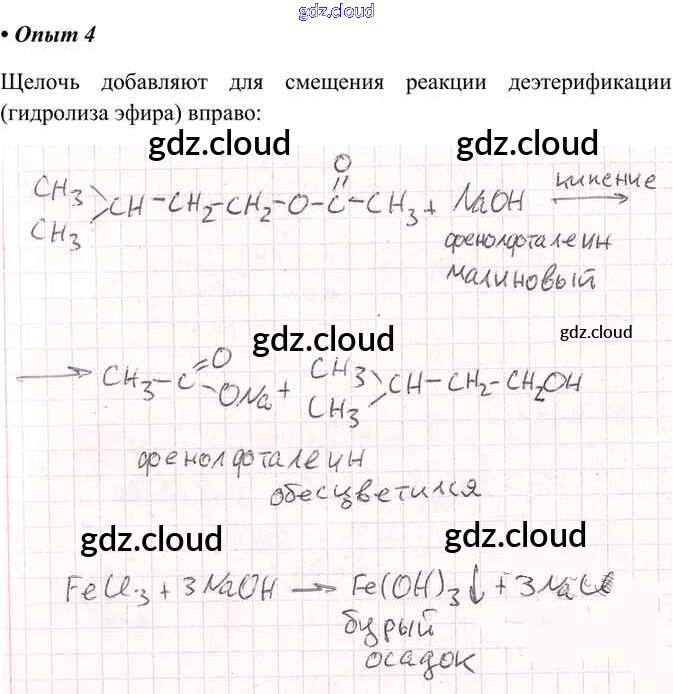 gdz.cloud
• Опыт 4
Щелочь добавляют для смещения реакции деэтерификации
(гидролиза эфира) вправо:
gdz.cloud gdz.cloud
O
CH3
CH3 >CH-CH2-CH2-O-C-CH3 + NaOH кипение →
фенолфталеин
малиновый
gdz.cloud gdz.cloud
→ CH3-C=O ONa + CH3 CH3 >CH-CH2-CH2OH
фенолфталеин
обесцветился
gdz.cloud gdz.cloud
FeCl3 + 3NaOH → Fe(OH)3↓ + 3NaCl
бурый
осадок